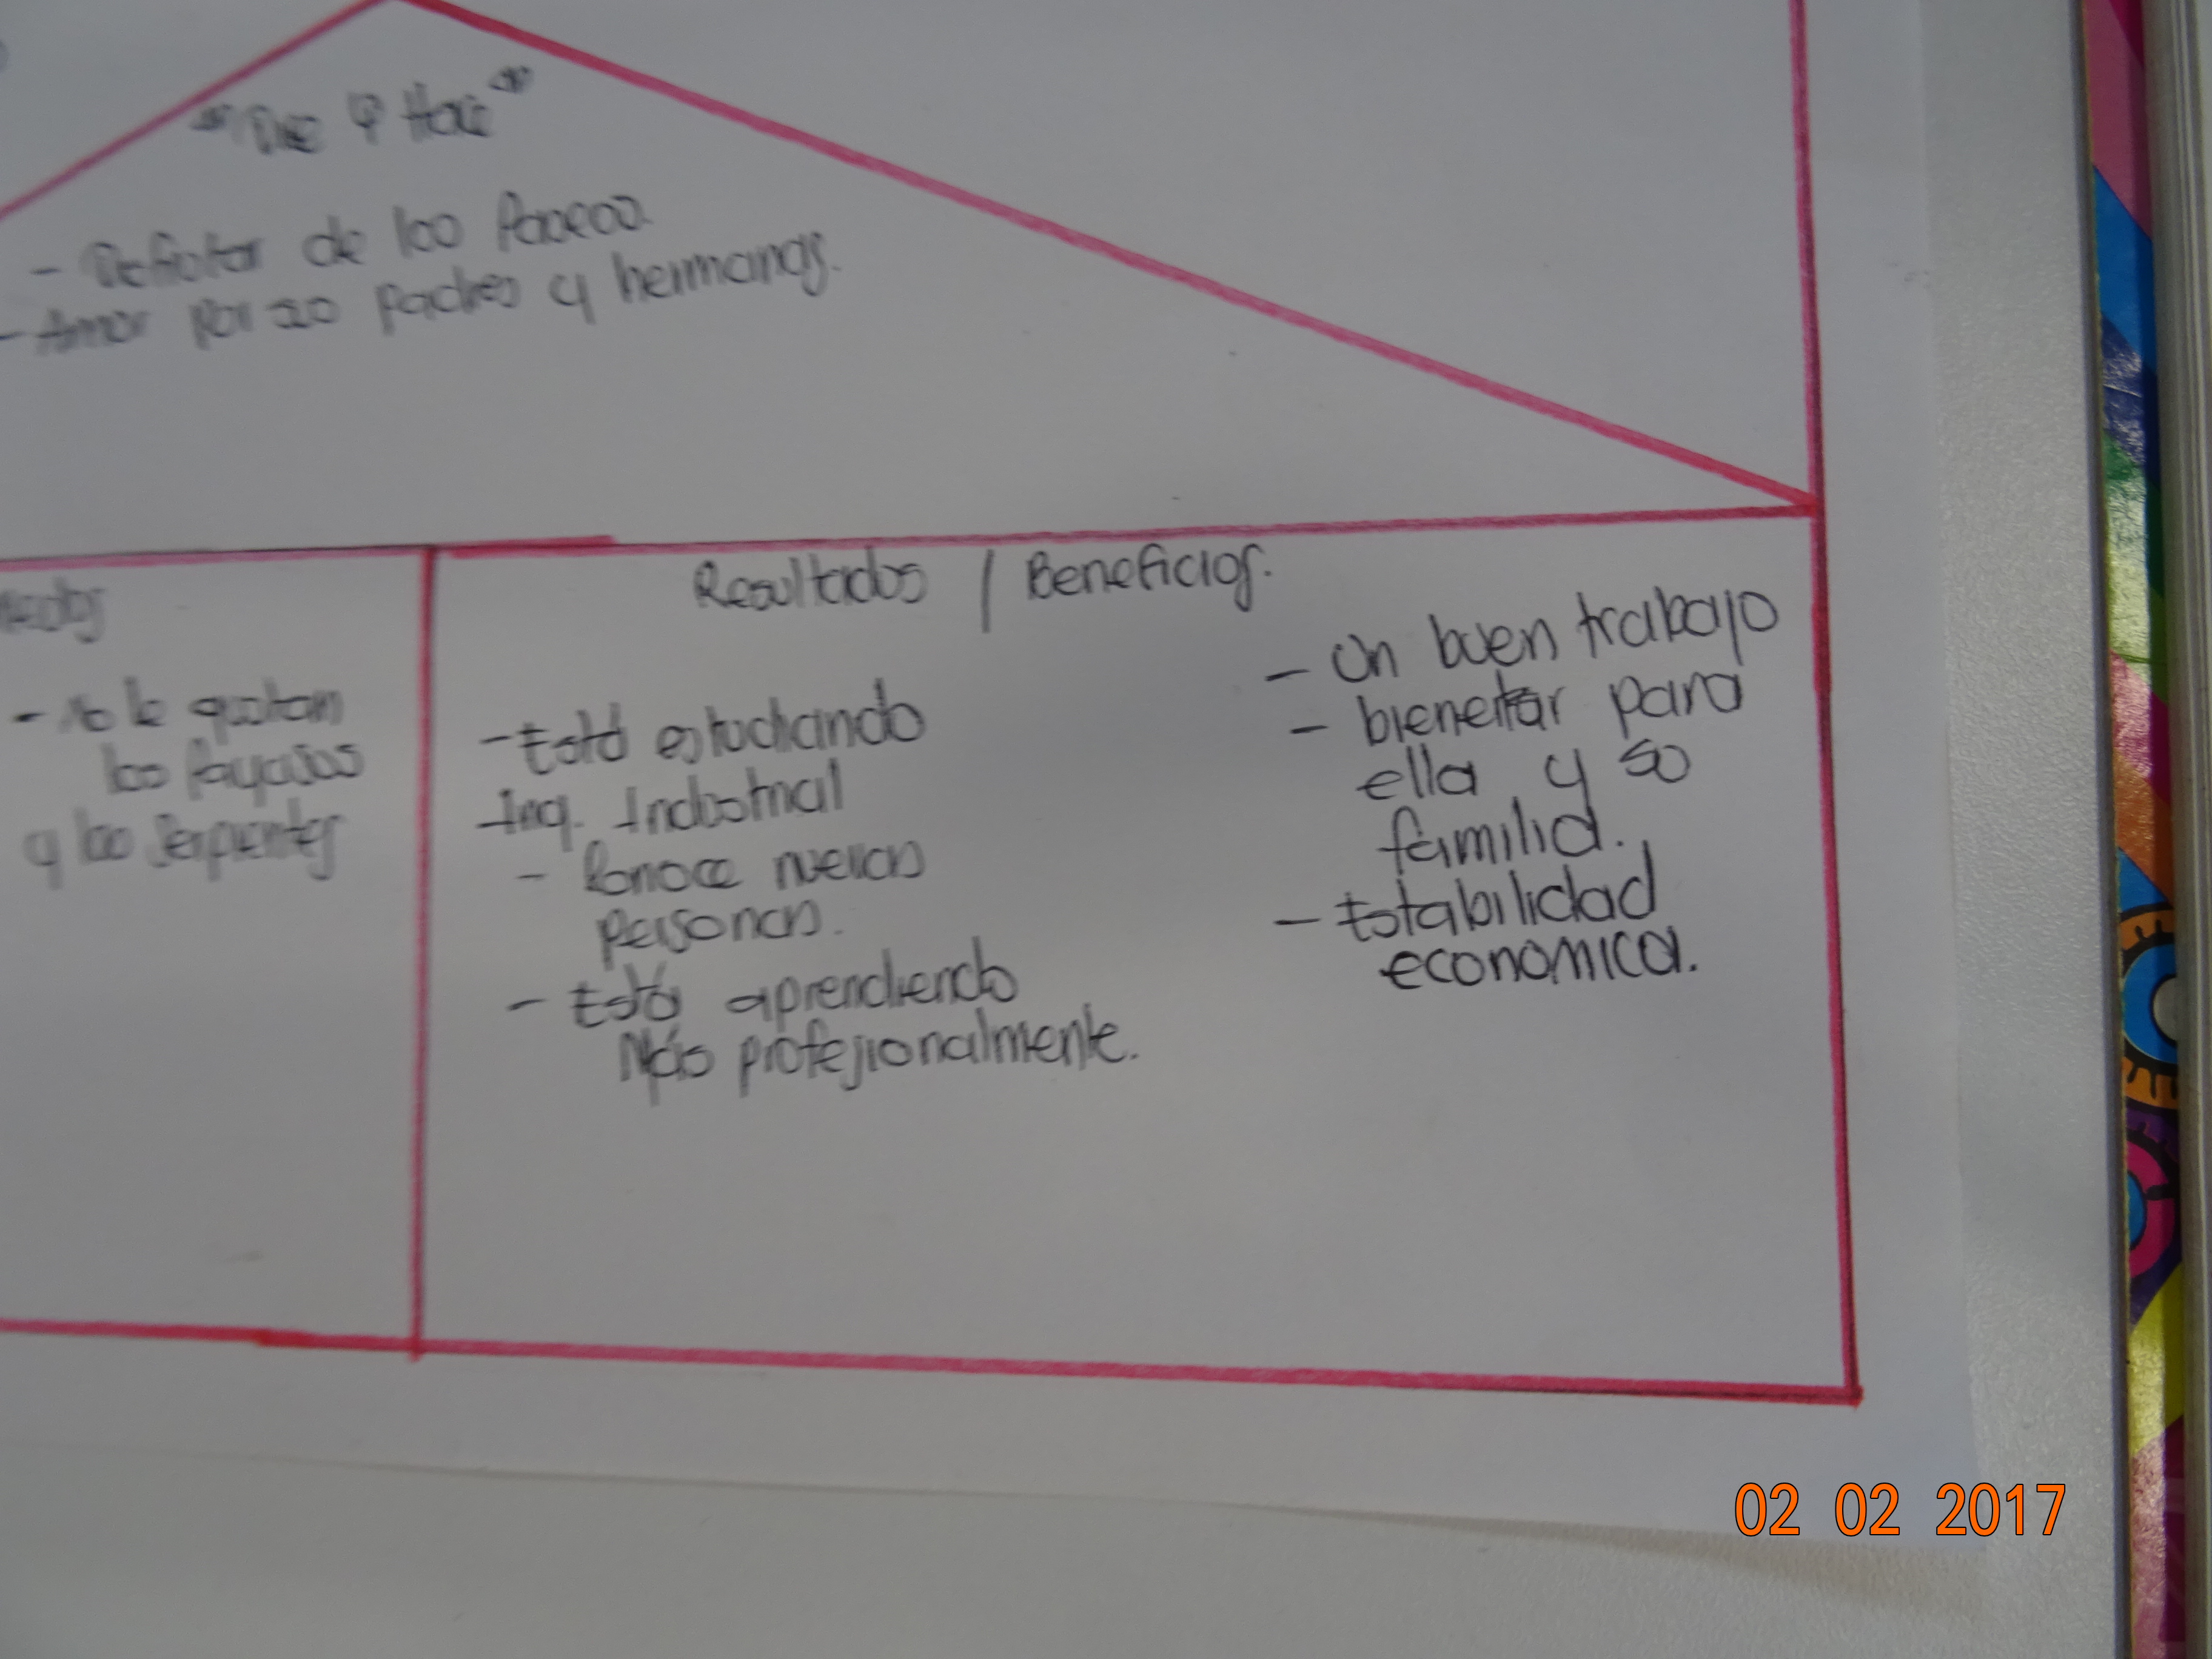 "Dice q Hace"
- Disfrutar de los Paseos.
- Amor por sus padres y hermanos.
Miedos
- No le gustan
los payasos
y las serpientes
Resultados / Beneficios.
- Está estudiando
Ing. Industrial
- Conoce nuevas
personas.
- Está aprendiendo
Más profesionalmente.
- Un buen trabajo
- bienestar para
ella y su
familia.
- Estabilidad
economica.
02 02 2017